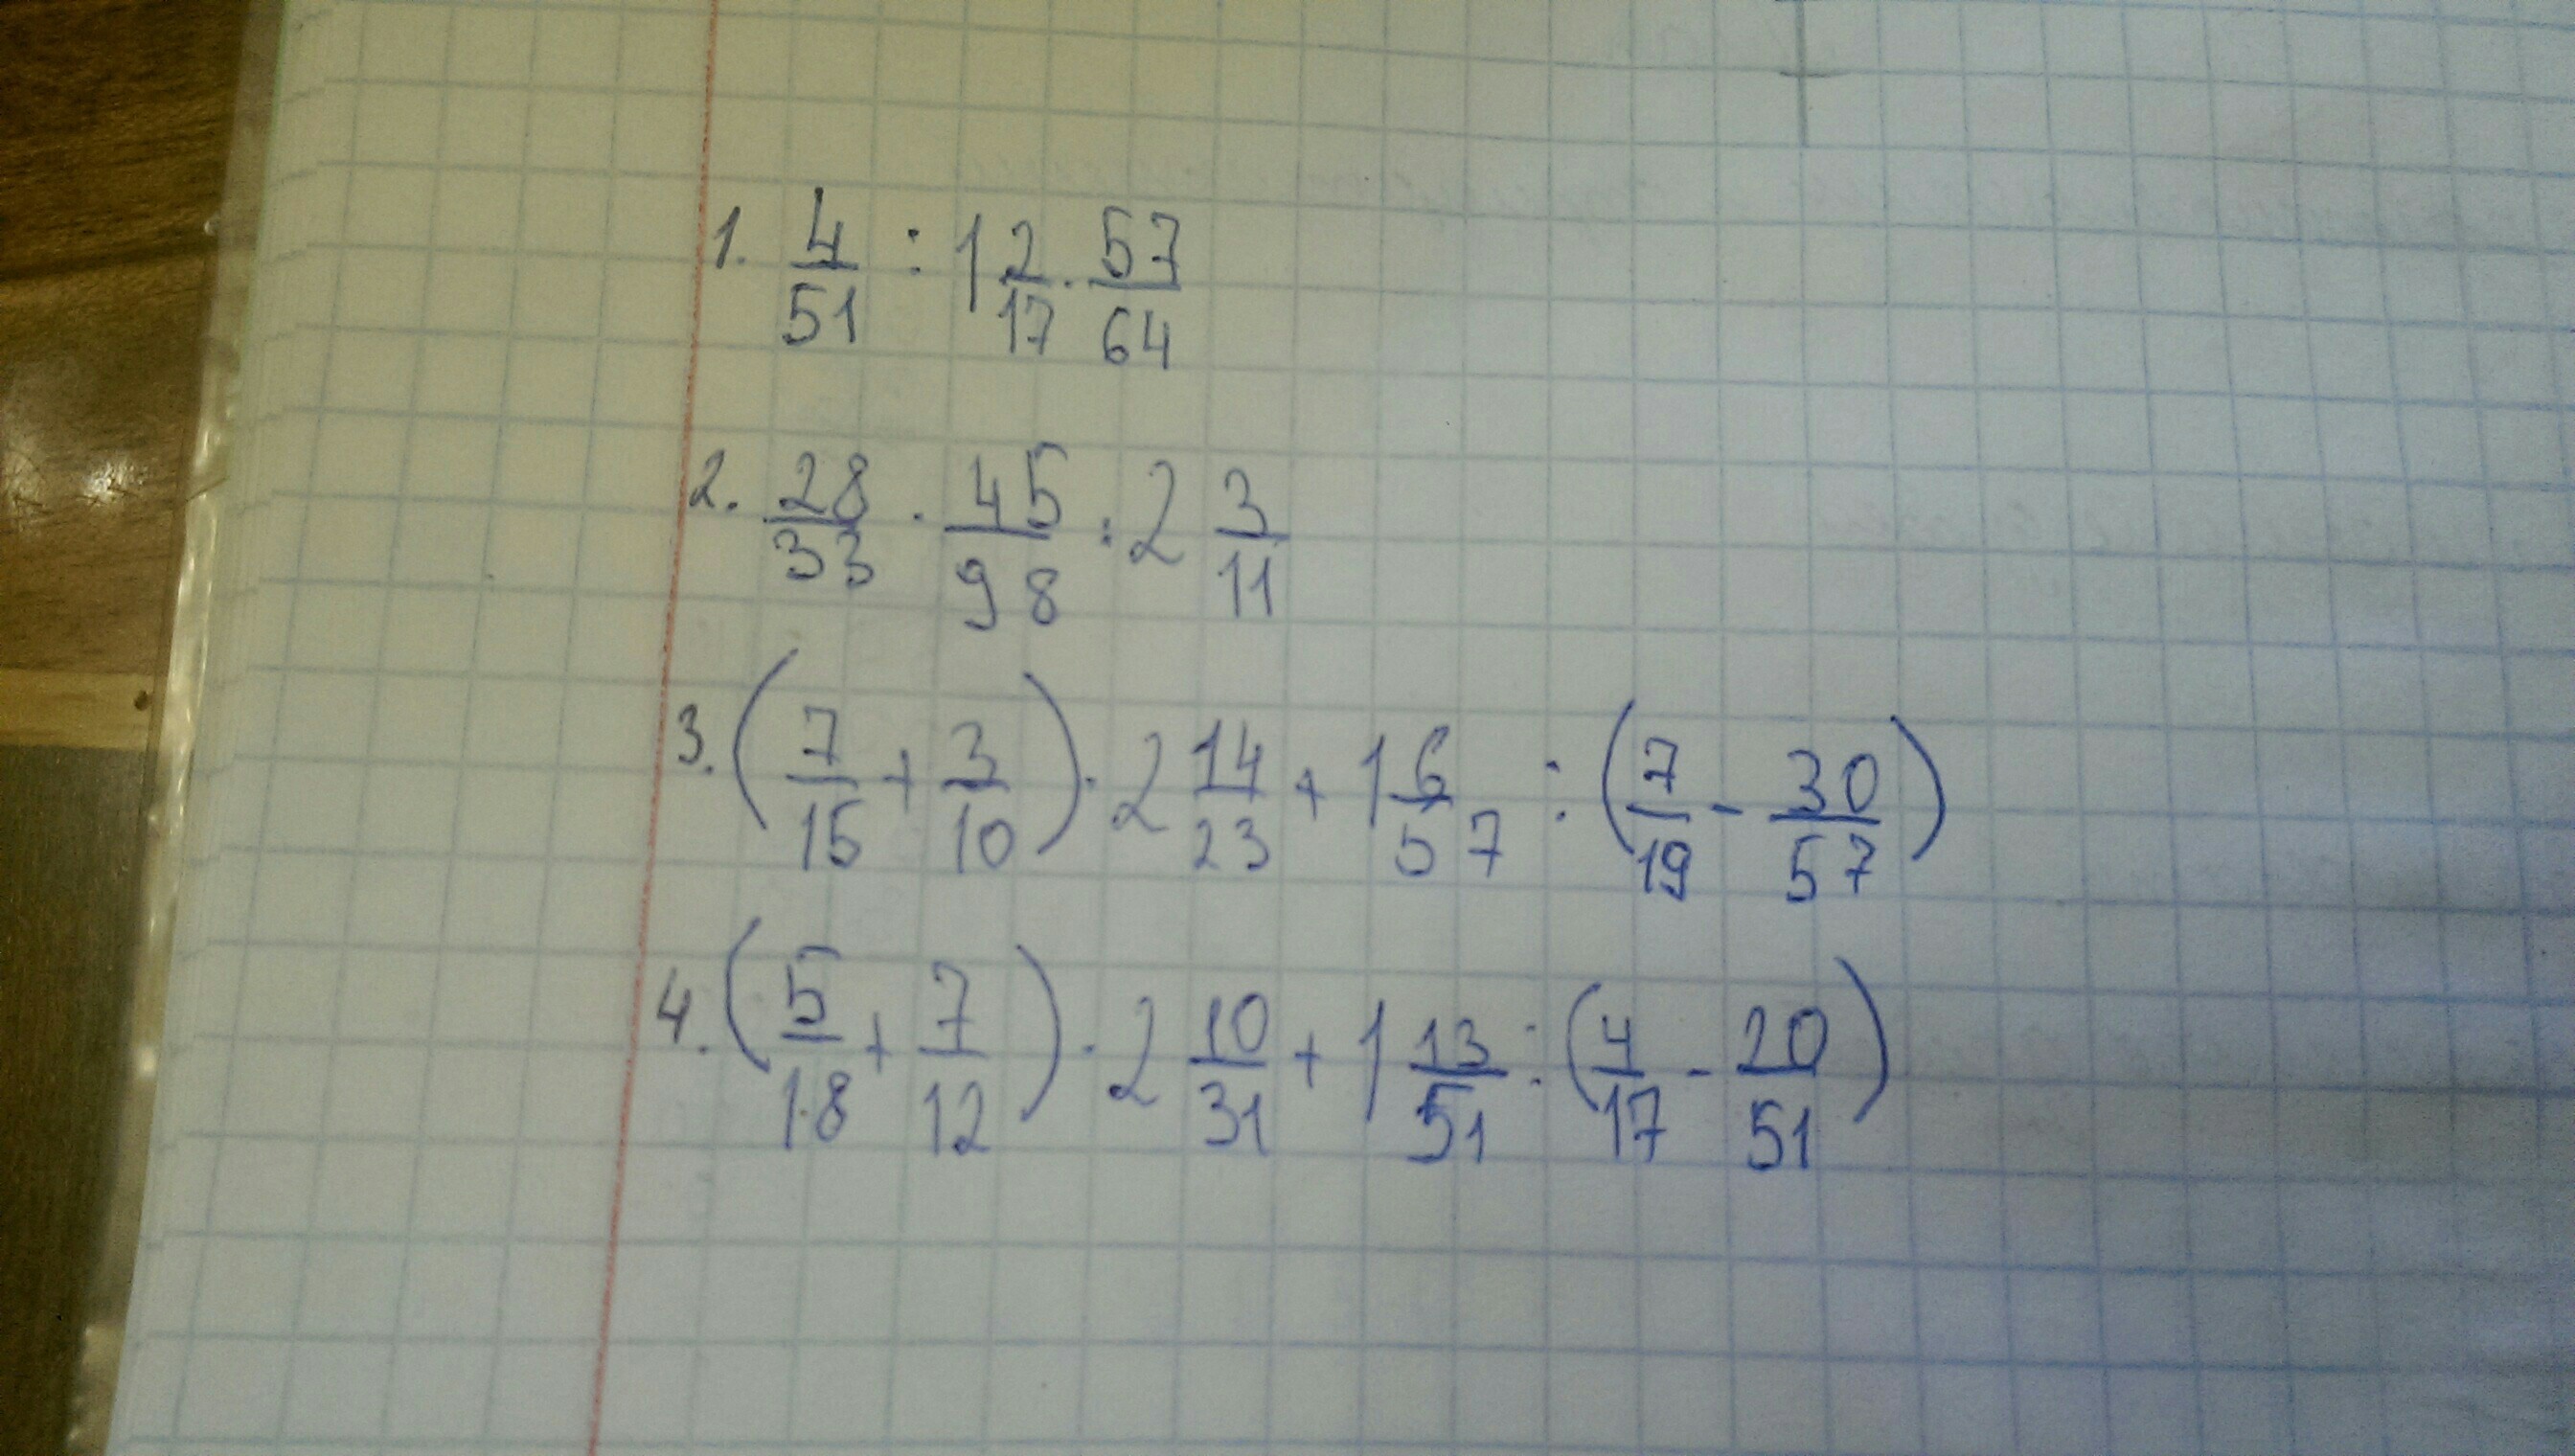 1. 4/51 : 1 2/17 · 57/64
2. 28/33 · 45/98 : 2 3/11
3. (7/15 + 3/10) · 2 14/23 + 1 6/57 : (7/19 - 30/57)
4. (5/18 + 7/12) · 2 10/31 + 1 13/51 : (4/17 - 20/51)